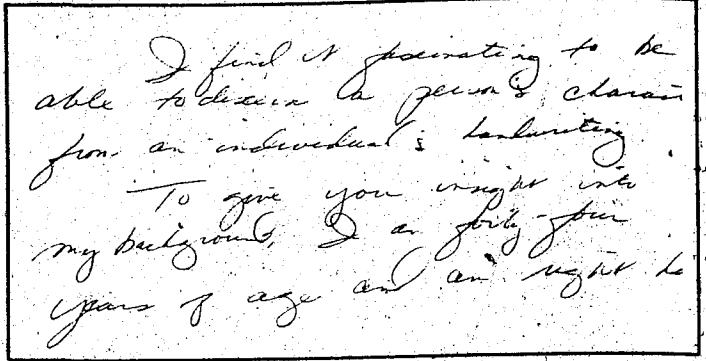 I find it fascinating to be
able to discern a person's charac
from an individual's handwriting.
To give you insight into
my background, I am forty-four
years of age and am right ha